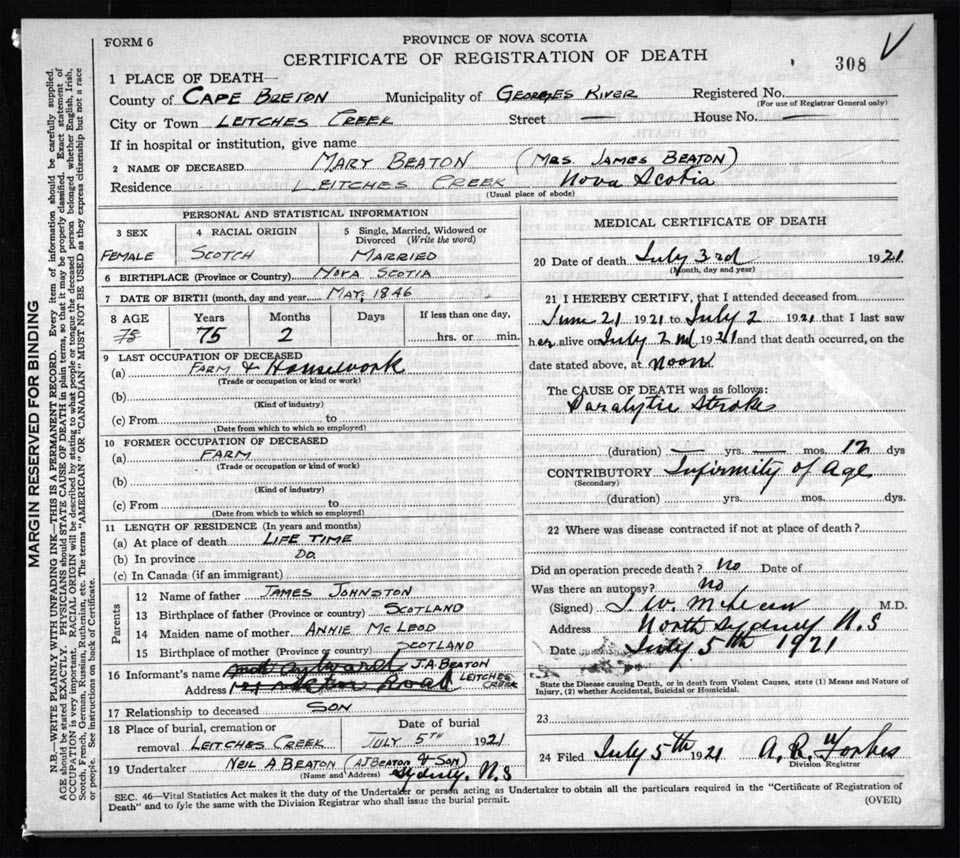 FORM 6
PROVINCE OF NOVA SCOTIA
CERTIFICATE OF REGISTRATION OF DEATH
308
1 PLACE OF DEATH—
County of CAPE BRETON Municipality of GEORGES RIVER Registered No.
(For use of Registrar General only)
City or Town LEITCHES CREEK Street — House No. —
If in hospital or institution, give name
2 NAME OF DECEASED MARY BEATON (MRS JAMES BEATON)
Residence LEITCHES CREEK Nova Scotia
(Usual place of abode)
PERSONAL AND STATISTICAL INFORMATION
3 SEX 4 RACIAL ORIGIN 5 Single, Married, Widowed or Divorced (Write the word)
FEMALE SCOTCH MARRIED
6 BIRTHPLACE (Province or Country) NOVA SCOTIA
7 DATE OF BIRTH (month, day and year) MAY, 1846
8 AGE Years Months Days If less than one day,
75 75 2 hrs. or min.
9 LAST OCCUPATION OF DECEASED
(a) FARM & Housework
(Trade or occupation or kind or work)
(b)
(Kind of industry)
(c) From to
(Date from which to which so employed)
10 FORMER OCCUPATION OF DECEASED
(a) FARM
(b)
(Kind of industry)
(c) From to
(Date from which to which so employed)
11 LENGTH OF RESIDENCE (In years and months)
(a) At place of death LIFE TIME
(b) In province DO.
(c) In Canada (if an immigrant)
Parents
12 Name of father JAMES JOHNSTON
13 Birthplace of father (Province or country) SCOTLAND
14 Maiden name of mother ANNIE MCLEOD
15 Birthplace of mother (Province or country) SCOTLAND
16 Informant's name J.A. BEATON
Address Road LEITCHES CREEK
17 Relationship to deceased SON
18 Place of burial, cremation or removal LEITCHES CREEK
Date of burial JULY 5TH 1921
19 Undertaker NEIL A BEATON (AJ BEATON & SON)
(Name and Address) Sydney. N.S
MEDICAL CERTIFICATE OF DEATH
20 Date of death July 3rd 1921
(Month, day and year)
21 I HEREBY CERTIFY, that I attended deceased from
June 21 1921 to July 2 1921 that I last saw
her alive on July 2nd 1921 and that death occurred, on the
date stated above, at noon
The CAUSE OF DEATH was as follows:
Paralytic Stroke
(duration) — yrs. — mos. 12 dys
CONTRIBUTORY Infirmity of Age
(Secondary)
(duration) yrs. mos. dys.
22 Where was disease contracted if not at place of death?
Did an operation precede death? no Date of
Was there an autopsy? no
(Signed) J. W. McLean M.D.
Address North Sydney N.S
Date July 5th 1921
State the Disease causing Death, or in death from Violent Causes, state (1) Means and Nature of
Injury, (2) whether Accidental, Suicidal or Homicidal.
23
24 Filed July 5th 1921 A. R. Forbes
Division Registrar
SEC. 46—Vital Statistics Act makes it the duty of the Undertaker or person acting as Undertaker to obtain all the particulars required in the "Certificate of Registration of
Death" and to fyle the same with the Division Registrar who shall issue the burial permit.
(OVER)
MARGIN RESERVED FOR BINDING
N.B.—WRITE PLAINLY WITH UNFADING INK—THIS IS A PERMANENT RECORD. Every item of information should be carefully supplied.
AGE should be stated EXACTLY. PHYSICIANS should STATE CAUSE OF DEATH in plain terms, so that it may be properly classified. Exact statement of
OCCUPATION is very important. RACIAL ORIGIN will be described by stating to what people or tongue the deceased person belonged whether English, Irish,
Scotch, French, German, Russian, Ruthenian, etc. The terms "AMERICAN" OR "CANADIAN" MUST NOT BE USED as they express citizenship but not a race
or people. See instructions on back of Certificate.